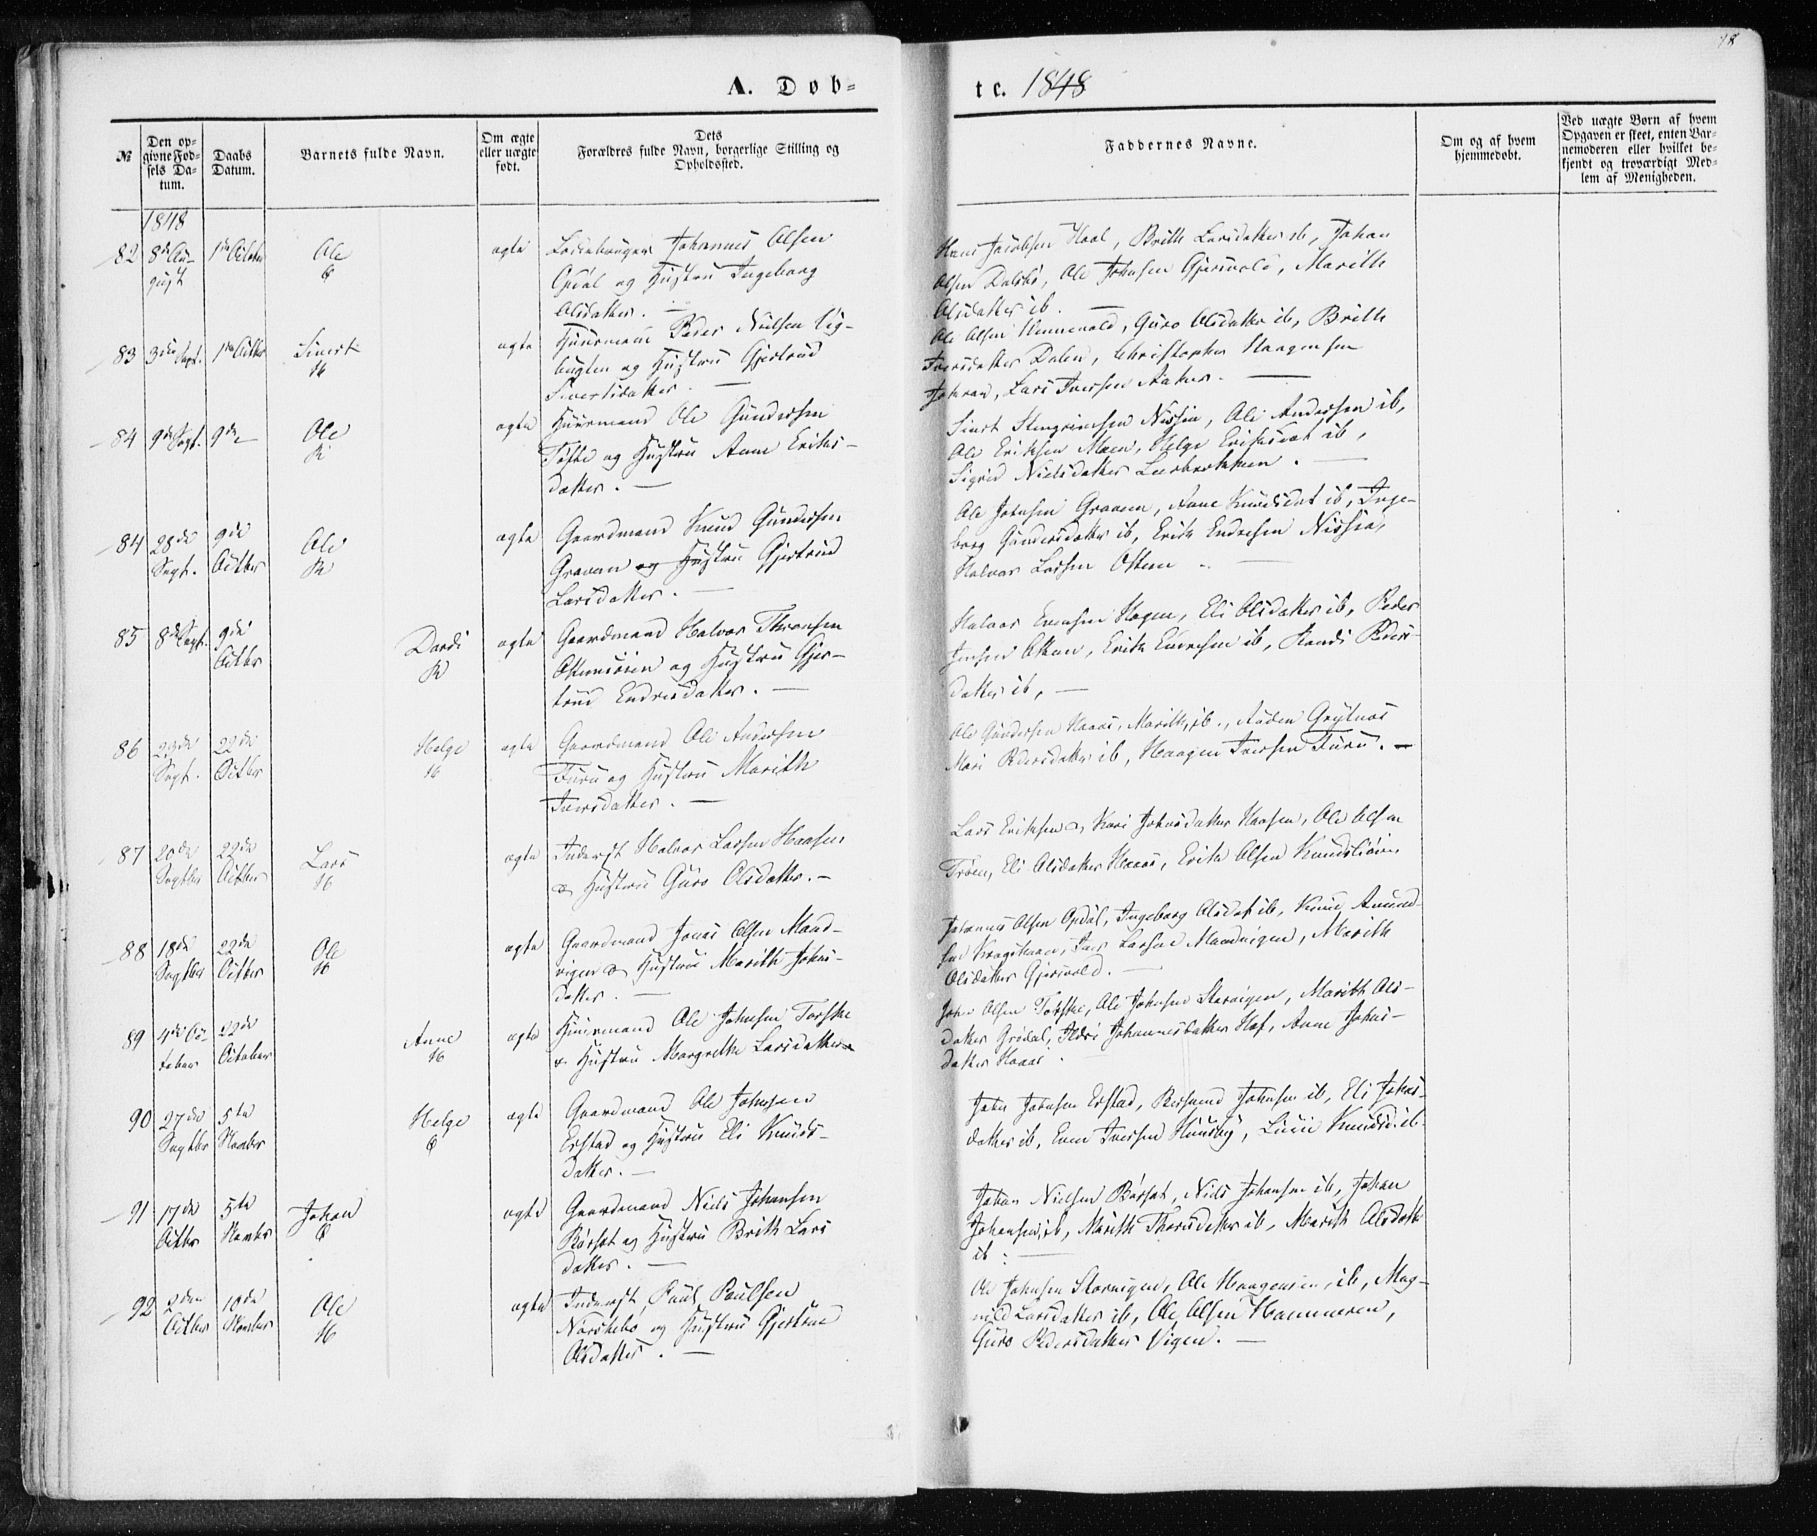 A. Døb-
te. 1848
18
№
Den opgivne Fødsels Datum.
Daabs Datum.
Barnets fulde Navn.
Om ægte eller uægte født.
Dets Forældres fulde Navn, borgerlige Stilling og Opholdssted.
Faddernes Navne.
Om og af hvem hjemmedøbt.
Ved uægte Børn af hvem Opgaven er skeet, enten Barnemoderen eller hvilket bekjendt og troværdigt Medlem af Menigheden.
1848
82 8de Au- 1ste Octbr Ole ægte Johannes Olsen
gust Opdal og Hustru Ingeborg
Olsdatter. —
Hans Jacobsen Hoel, Brith Larsdatter ib, Johan
Olsen Dalsbø, Ole Johnsen Gjersvold, Marith
Olsdatter ib. —
83 3die Sept. 1ste Octbr Sivert ægte Huusmand Peder Nielsen Vig-
H bugten og Hustru Gjertrud
Sivertsdatter. —
Ole Olsen Hennevold, Guro Olsdatter ib, Brith
Iversdatter Dalen, Christopher Haagensen
Lars Iversen Aaker. —
84 9de Sept. 9de — Ole ægte Huusmand Ole Gundersen
og Hustru Anne Eriks-
datter. —
Sivert Steengrimsen Nissja, Ole Andersen ib,
Ole Eriksen Moen, Helge Eriksdat ib,
Sigrid Nielsdatter . —
84 28de 9de Ole ægte Gaardmand Knud Gundersen
Sept. Octbr Graven og Hustru Gjertrud
Larsdatter. —
Ole Johnsen Graven, Anne Knudsdat ib, Inge-
borg Gundersdatter ib, Erik Endresen Nissja,
Halvor Larsen Ottem. —
85 8de Sept. 9de Dordi ægte Gaardmand Halvor Thronsen
Octbr og Hustru Gjer-
trud Endresdatter. —
Halvor Evensen Hagen, Eli Olsdatter ib, Peder
Jensen , Erik Endresen ib, Randi Peders-
datter ib, —
86 23de 22de Helge ægte Gaardmand Ole Andersen
Sept. Octbr H Furu og Hustru Marith
Iversdatter. —
Ole Gundersen Haaas, Marith, ib., Auden Grytnæs
Mari Pedersdatter ib, Haagen Iversen Furu. —
87 20de 22de Lars ægte Inderst Halvor Larsen Haasen
Septbr Octbr H & Hustru Guro Olsdatter. —
Lars Eriksen & Kari Johnsdatter Haasen, Ole Olsen
Trøen, Eli Olsdatter Haaas, Erik Olsen Knudsliøien
88 18de 22de Ole ægte Gaardmand Jonas Olsen Mand-
Septbr Octbr H vigen & Hustru Marith Johns-
datter. —
Johannes Olsen Opdal, Ingeborg Olsdat ib, Knud Amund-
sen , Iver Larsen Mandvigen, Marith
Olsdatter Gjersvold. —
89 4de Oc- 22de Anne ægte Huusmand Ole Johnsen Torske
tober October H & Hustru Margrethe Larsdatter
John Olsen Torske, Ole Johnsen Storvigen, Marith Ols-
datter Grødal, Ildri Johannesdatter Hof, Anne Johns-
datter Haaas.
90 27de 5te Helge ægte Gaardmand Ole Johnsen
Septbr Novbr Erstad og Hustru Eli Knuds-
datter. —
John Johnsen Erstad, Bersvend Johnsen ib, Eli Johns-
datter ib, Even Iversen Huusby, Knudsd. ib
91 17de 5te Johan ægte Gaardmand Niels Johansen
Octbr Novbr Børset og Hustru Brith Lars
datter. —
Johan Nielsen Børset, Niels Johansen ib, Johan
Johansen, ib, Marith Thoresdatter ib, Marith Olsdatt
ib. —
92 2den 19de Ole ægte Inderst Paul Paulsen
Octbr Novbr H Norskebø og Hustru Gjertrud
Olsdatter. —
Ole Johnsen Storvigen, Ole Haagensen ib, Mag-
nild Larsdatter ib, Ole Olsen Hammeren,
Guro Pedersdatter Vigen. —